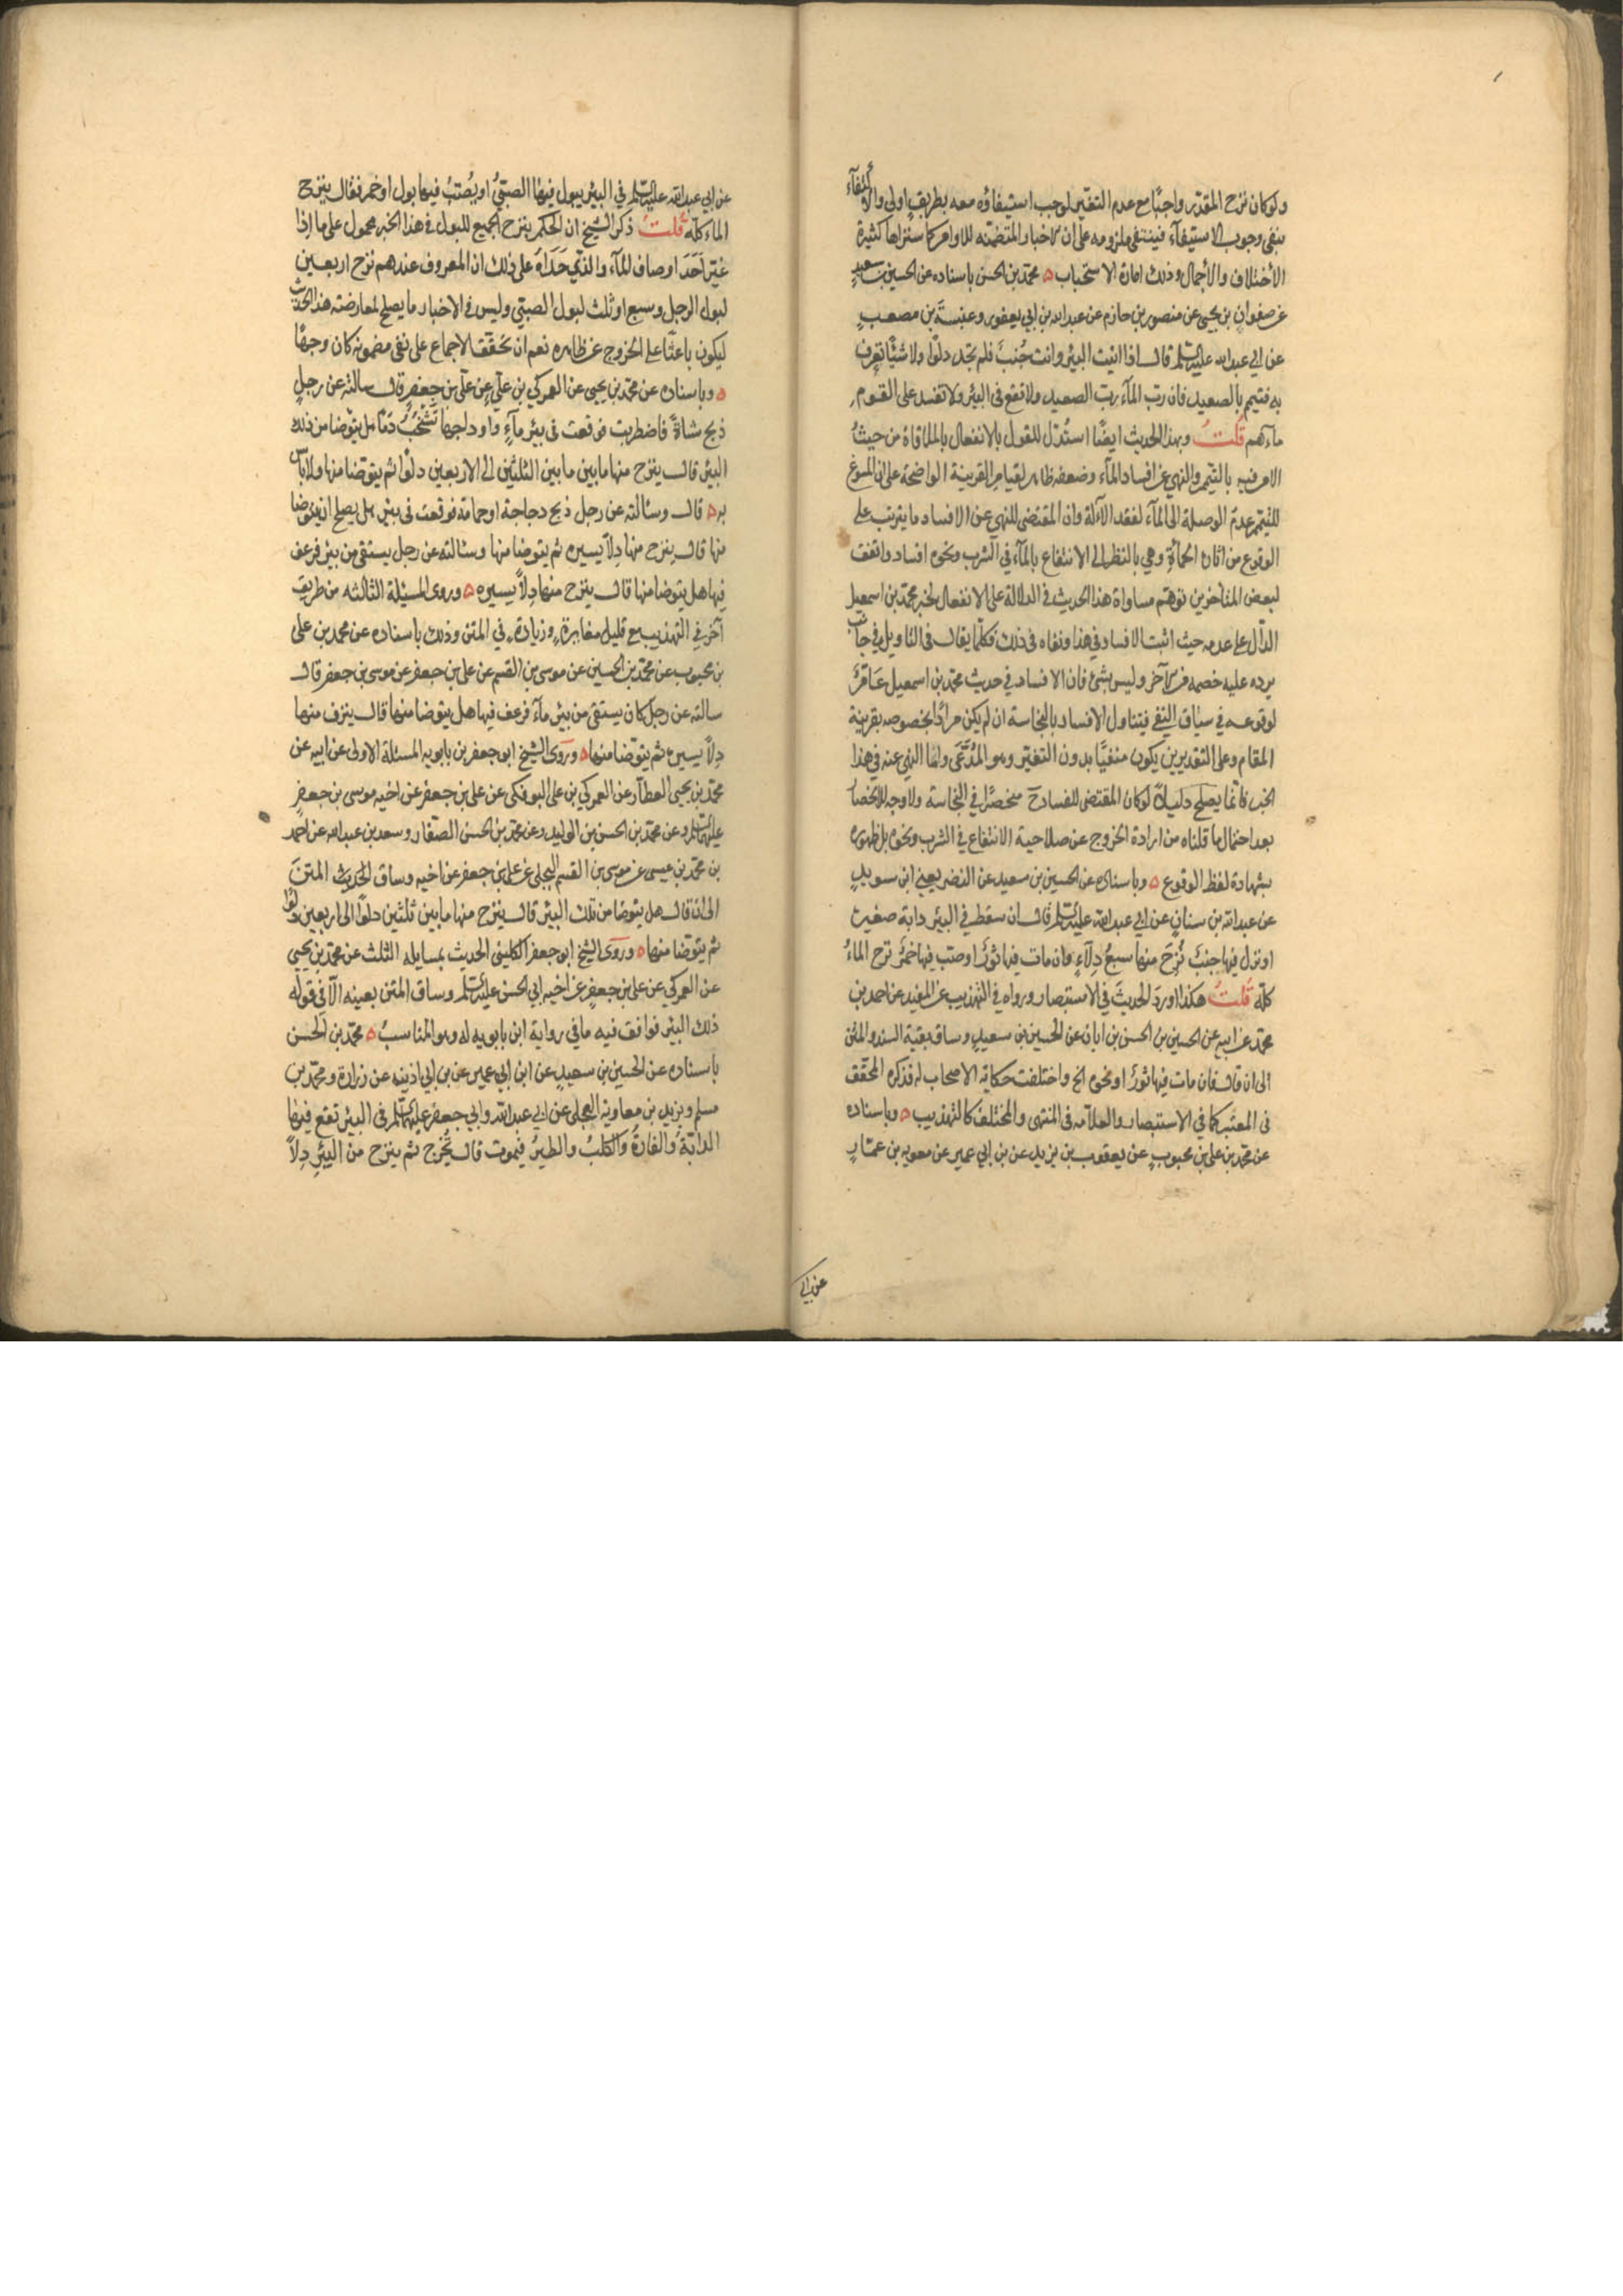 ولو كان نزح المقدّر واجبًا مع عدم التغيّر لوجب استيفاؤه معه بطريقٍ اولى والاكتفآء
ينفى وجوب الاستيفآء فينتفى ملزومه على ان الاخبار المتضمّنه للاوامر كما ستراها كثيرة
الأختلاف والأجمال وذلك امارة الاستحباب ٥ محمّد بن الحسن باسناده عن الحسين بن سعيدٍ
عن صفوان بن يحيى عن منصور بن حازم عن عبد الله بن ابي يعفور وعنبسة بن مصعبٍ
عن ابي عبد الله عليه السّلم قال اذا اتيت البئر وانت جُنبٌ فلم تجد دلوًا ولا شيئًا تغرف
به فتيمم بالصعيد فان ربّ المآء ربّ الصعيد ولا تقع فى البئر ولا تفسد على القوم
مآءهم قلتُ وبهذا الحديث ايضًا استُدلّ للقول بالانفعال بالملاقاة من حيثُ
الامر فيه بالتيمم والنهي عن افساد المآء وضعفه ظاهر لقيام القرينة الواضحة على ان المسوغ
للتيمم عدم الوصلة الى المآء لفقد الآلة وان المقتضى للنهي عن الافساد ما يترتب على
الوقوع من اثارة الحمأةِ وهي بالنظر الى الانتفاع بالمآء في الشرب ونحوه افساد واتفق
لبعض المتأخرين توهّم مساواة هذا الحديث فى الدلالة على الانفعال لخبر محمّد بن اسمعيل
الدآل على عدمه حيث اثبت الافساد في هذا ونفاه فى ذلك فكلّما يقال فى التاويل في جانب
يرده عليه خصمه فى الآخر وليس بشئ فان الافساد في حديث محمّد بن اسمعيل عَامٌّ
لوقوعه في سياق النفي فيتناول الافساد بالنجاسة ان لم يكن مرادًا بخصوصه بقرينة
المقام وعلى التقديرين يكون منفيًّا بدون التغيّر وهو المُدَّعَى وامّا النهي عنه في هذا
الخبر فانما يصلح دليلاً لو كان المقتضى للفساد منحصرًا في النجاسة ولا وجه للانحصار
بعد احتمال ما قلناه من ارادة الخروج عن صلاحية الانتفاع في الشرب ونحوه بل ظهوره
بشهادة لفظ الوقوع ٥ وباسناده عن الحسين بن سعيد عن النضر يعني ابن سويدٍ
عن عبد الله بن سنانٍ عن ابي عبد الله عليه السّلم قال ان سقط في البئر دابّة صغيرة
او نزل فيها جنبٌ نُزِحَ منها سبعُ دِلآءٍ فان مات فيها ثورٌ او صبّ فيها خمرٌ نزح المآءُ
كلّه قُلتُ هكذا اوردَ الحديثَ في الاستبصار ورواه في التهذيب عن المفيد عن احمد بن
محمّد عن ابيه عن الحسين بن الحسن بن ابان عن الحسين بن سعيدٍ وساق بقية السند والمتن
الى ان قال فان مات فيها ثورٌ او نحوه الخ واختلفت حكاية الاصحاب له فذكره المحقّق
فى المعتبر كما في الاستبصار والعلآمه فى المنتهى والمختلف كالتهذيب ٥ وباسناده
عن محمّد بن على بن محبوبٍ عن يعقوب بن يزيد عن بن ابي عمير عن معويه بن عمّارٍ
عن ابي
عن ابي عبد الله عليه السّلم في البئر يبول فيها الصبيّ او يُصبّ فيها بول او خمر فقال ينزح
الماء كلّه قُلتُ ذكر الشيخ ان الحكم بنزح الجميع للبول فى هذا الخبر محمول على ما اذا
غيّر اَحَدَ اوصاف المآء والذي حَدَاهُ على ذلك ان المعروف عندهم نزح اربعين
لبول الرجل وسبع او ثلث لبول الصبيّ وليس فى الاخبار ما يصلح لمعارضته هذا الحديث
ليكون باعثًا على الخروج عن ظاهره نعم ان تحقّق الاجماع على نفى مضمونه كان وجهًا
٥ وباسناده عن محمّد بن يحيى عن العمركي بن عليٍّ عن علي بن جعفرٍ قال سالته عن رجلٍ
ذبح شاةً فاضطربت فوقعت فى بئر مآءٍ واوداجها تَشخُبُ دَمًا هل يتوضا من ذلك
البئر قال ينزح منها ما بين ما بين الثلثين الى الاربعين دلوًا ثم يتوضا منها ولا باس
به ٥ قال وسئالته عن رجل ذبح دجاجة او حمامة فوقعت فى بئرٍ هل يصلح ان يتوضا
منها قال ينزح منها دِلآ يسيره ثم يتوضا منها وسئالته عن رجل يستقى من بئر فرعف
فيها هل يتوضا منها قال ينزح منها دِلآ يسيره ٥ وروى المسئلة الثالثه من طريقٍ
آخر في التهذيب مع قليل مغايرةٍ وزيادةٍ في المتن وذلك باسناده عن محمد بن على
بن محبوب عن محمّد بن الحسين عن موسى بن القسم عن على بن جعفر عن موسى بن جعفر قال
سالته عن رجل كان يستقى من بئر مآء فرعف فيها هل يتوضا منها قال ينزف منها
دِلآ يسيره ثم يتوّضا منها ٥ وروى الشيخ ابو جعفر بن بابويه المسئلة الاولى عن ابيه عن
محمّد بن يحيى العطآر عن العمركي بن على البوفكى عن على بن جعفر عن اخيه موسى بن جعفرٍ
عليهما السّلم وعن محمّد بن الحسن بن الوليد وعن محمّد بن الحسن الصفّار وسعد بن عبد الله عن احمد
بن محمّد بن عيسى عن موسى بن القسم البجلى عن على بن جعفر عن اخيه وساق الحديث المتن
الى ان قال هل يتوضا من تلك البئر قال ينزح منها ما بين ثلثين دلوًا الى اربعين دلوًا
ثم يتوضا منها ٥ وروى الشيخ ابو جعفر الكلينى الحديث بمسايله الثلث عن محمّد بن يحيى
عن العمركي عن على بن جعفرٍ عن اخيه ابي الحسن عليه السّلم وساق المتن بعينه الّا في قوله
ذلك البئر فوافق فيه ما في رواية ابن بابويه له وهو المناسبُ ٥ محمّد بن الحسن
باسناده عن الحسين بن سعيدٍ عن ابن ابي عمير عن بن ابي اذينه عن زرارة ومحمّد بن
مسلم وبزيد بن معاوية العجلى عن ابي عبد الله وابي جعفرٍ عليهما السّلم فى البئر تقع فيها
الدابّةُ والفارةُ والكلبُ والطيرُ فيموت قال يُخرج ثم ينزح من البئرِ دِلآ